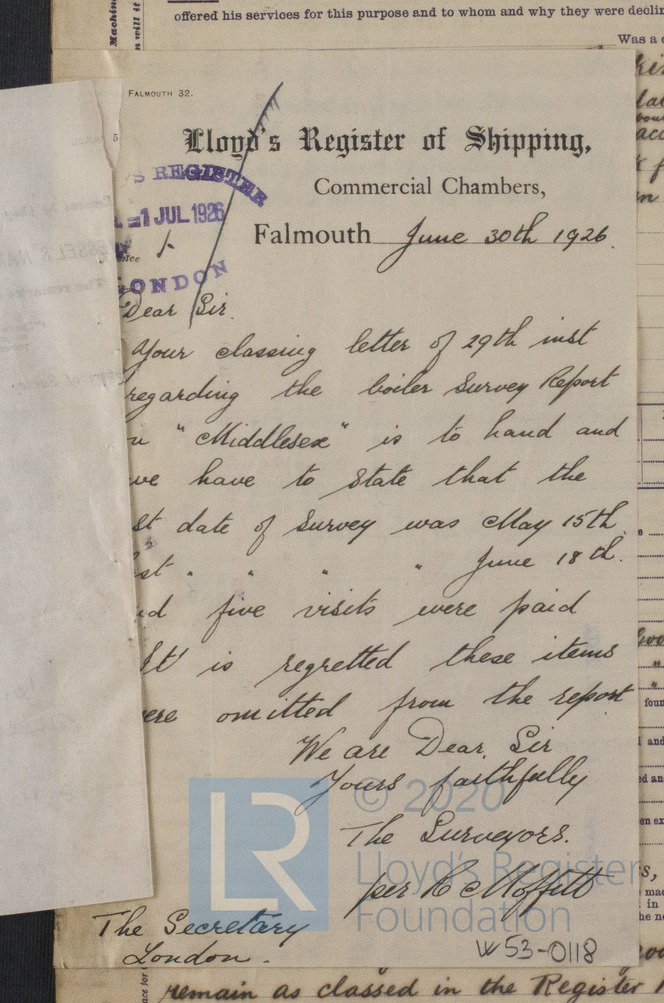 offered his services for this purpose and to whom and why they were
Was a
FALMOUTH 32.
Lloyd's Register of Shipping,
Commercial Chambers,
'S REGISTER
-1 JUL 1926
LONDON
Falmouth June 30th 1926.
Dear Sir.
Your classing letter of 29th inst
regarding the boiler Survey Report
"Middlesex" is to hand and
we have to State that the
st date of Survey was May 15th
st " " " " June 18th.
d five visits were paid
It is regretted these items
ere omitted from the report
We are Dear Sir
Yours faithfully
The Surveyors.
per R C Moffitt
The Secretary
London.
W53-0118
LR
© 2020
Lloyd's Register
Foundation
remain as classed in the Register